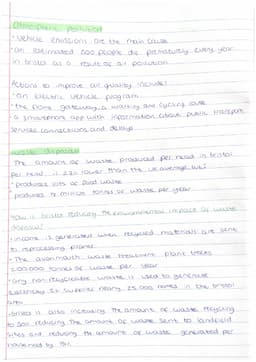 Atmospheric pollution
• Vehicle emissions are the main cause
• An estimated 200 people die prematurely every year
in bristol as a result of air pollution
Actions to improve air quality include:
• An electric vehicle program
• the Frome gateway, a walking and cycling route
• a smartphone app with information about public transport
services connections and delays
waste disposal
The amount of waste produced per head in bristol
per head is 23% lower than the UK average, but
• produces lots of food waste
• produces ½ million tonnes of waste per year
How is bristol reducing the environmental impact of waste
disposal?
• income is generated when recycled materials are sent
to reprocessing plants.
• The avonmouth waste treatment plant treats
200,000 tonnes of waste per year
• any non recyclable waste is used to generate
electricity. It supplies nearly 25,000 homes in the bristol
area
• bristol is also increasing the amount of waste recycling
to 50% reducing the amount of waste sent to landfill
sites and reducing the amount of waste generated per
household by 15%.